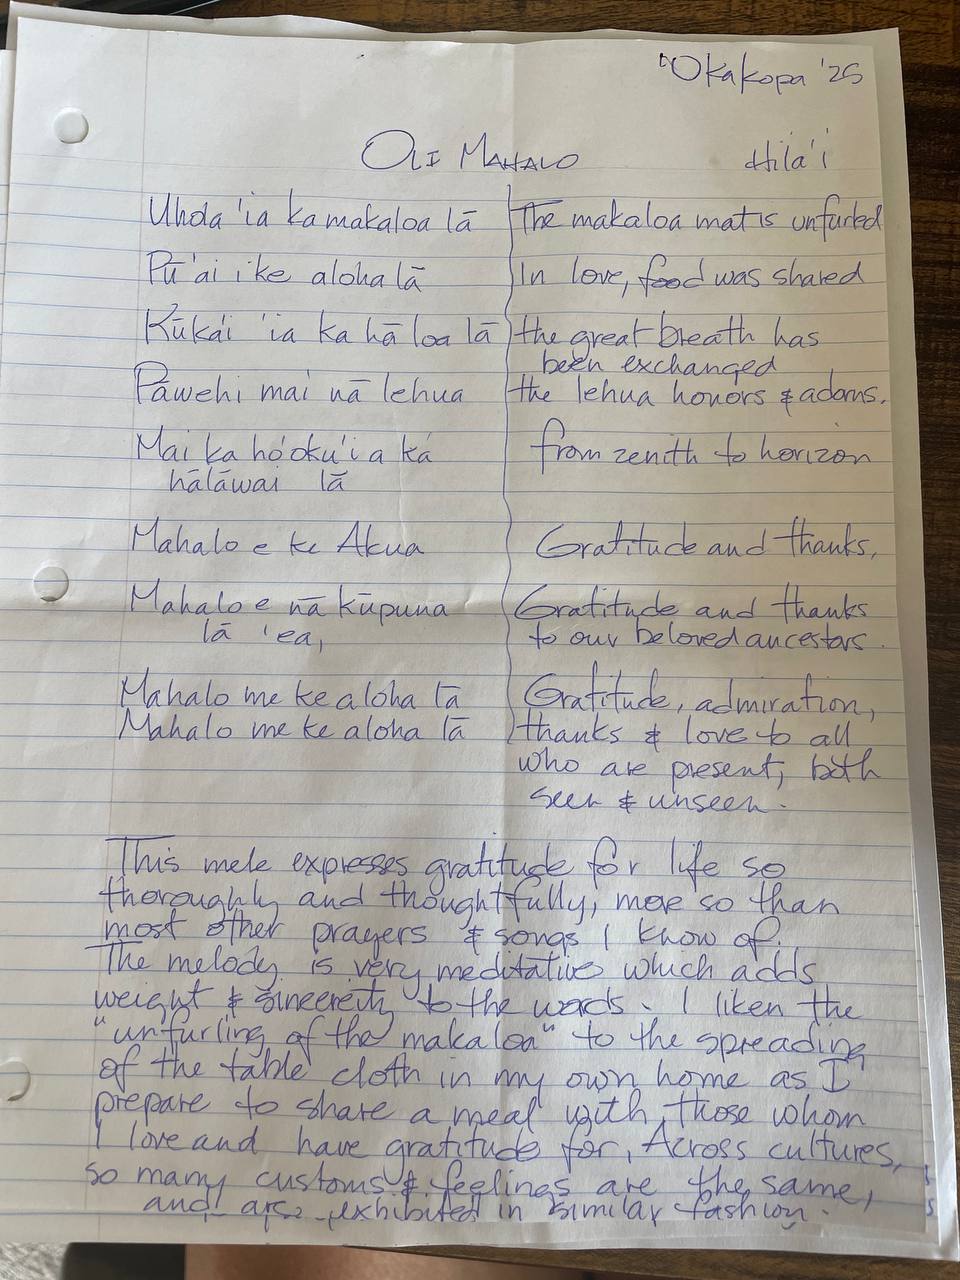 'Okakopa '25
OLI MAHALO Hila'i
Uhola 'ia ka makaloa lā The makaloa mat is unfurled
Pū'ai i ke aloha lā In love, food was shared
Kūka'i 'ia ka hā loa lā the great breath has
been exchanged
Pāwehi mai nā lehua the lehua honors & adorns.
Mai ka ho'oku'i a ka from zenith to horizon
hālāwai lā
Mahalo e ke Akua Gratitude and thanks.
Mahalo e nā kūpuna Gratitude and thanks
lā 'ea, to our beloved ancestors.
Mahalo me ke aloha lā Gratitude, admiration,
Mahalo me ke aloha lā thanks & love to all
who are present, both
seen & unseen.
This mele expresses gratitude for life so
thoroughly and thoughtfully, more so than
most other prayers & songs I know of.
The melody is very meditative which adds
weight & sincereity to the words. I liken the
"unfurling of the makaloa" to the spreading
of the table cloth in my own home as I
prepare to share a meal with those whom
I love and have gratitude for. Across cultures,
so many customs & feelings are the same,
and are exhibited in similar fashion.